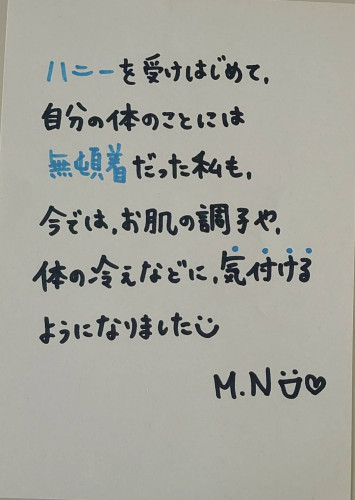 ハニーを受けはじめて、
自分の体のことには
無頓着だった私も、
今では、お肌の調子や、
体の冷えなどに、気付ける
ようになりました
M.N